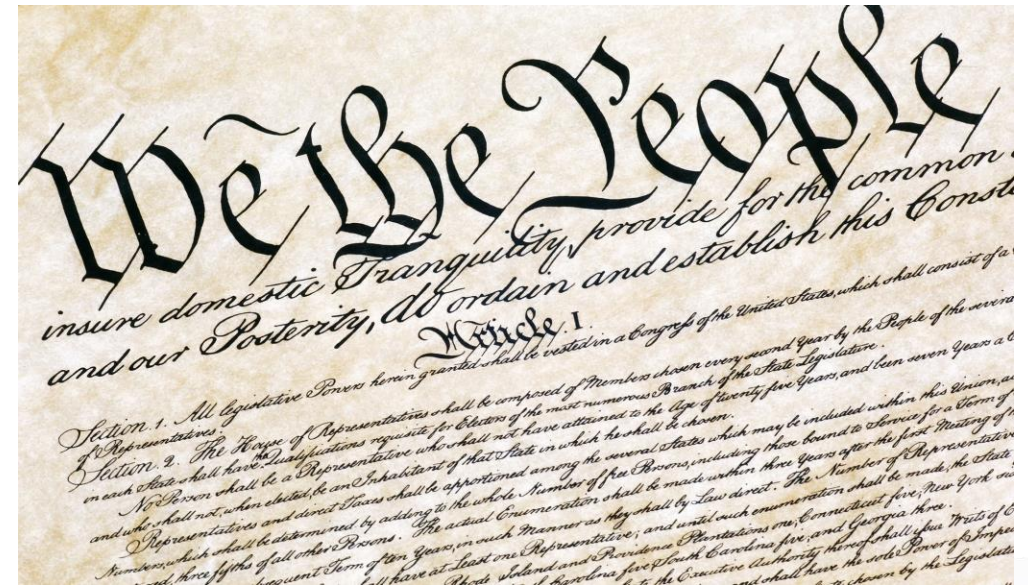 We the People
insure domestic Tranquility, provide for the common
and our Posterity, do ordain and establish this Const
Article I.
Section 1. All legislative Powers herein granted shall be vested in a Congress of the United States, which shall consist of a
of Representatives.
Section. 2. The House of Representatives shall be composed of Members chosen every second Year by the People of the several
in each State shall have the Qualifications requisite for Electors of the most numerous Branch of the State Legislature.
No Person shall be a Representative who shall not have attained to the Age of twenty five Years, and been seven Years a
and who shall not, when elected, be an Inhabitant of that State in which he shall be chosen.
Representatives and direct Taxes shall be apportioned among the several States which may be included within this Union,
Numbers, which shall be determined by adding to the whole Number of free Persons, including those bound to Service for a Term of
three fifths of all other Persons. The actual Enumeration shall be made within three Years after the first Meeting of
Term of ten Years, in such Manner as they shall by Law direct. The Number of Representatives
shall have at Least one Representative; and until such enumeration shall be made, the State
Rhode Island and Providence Plantations one, Connecticut five, New York
Carolina five, South Carolina five, and Georgia three.
the Executive Authority thereof shall issue Writs of
and shall have the sole Power of
chosen by the